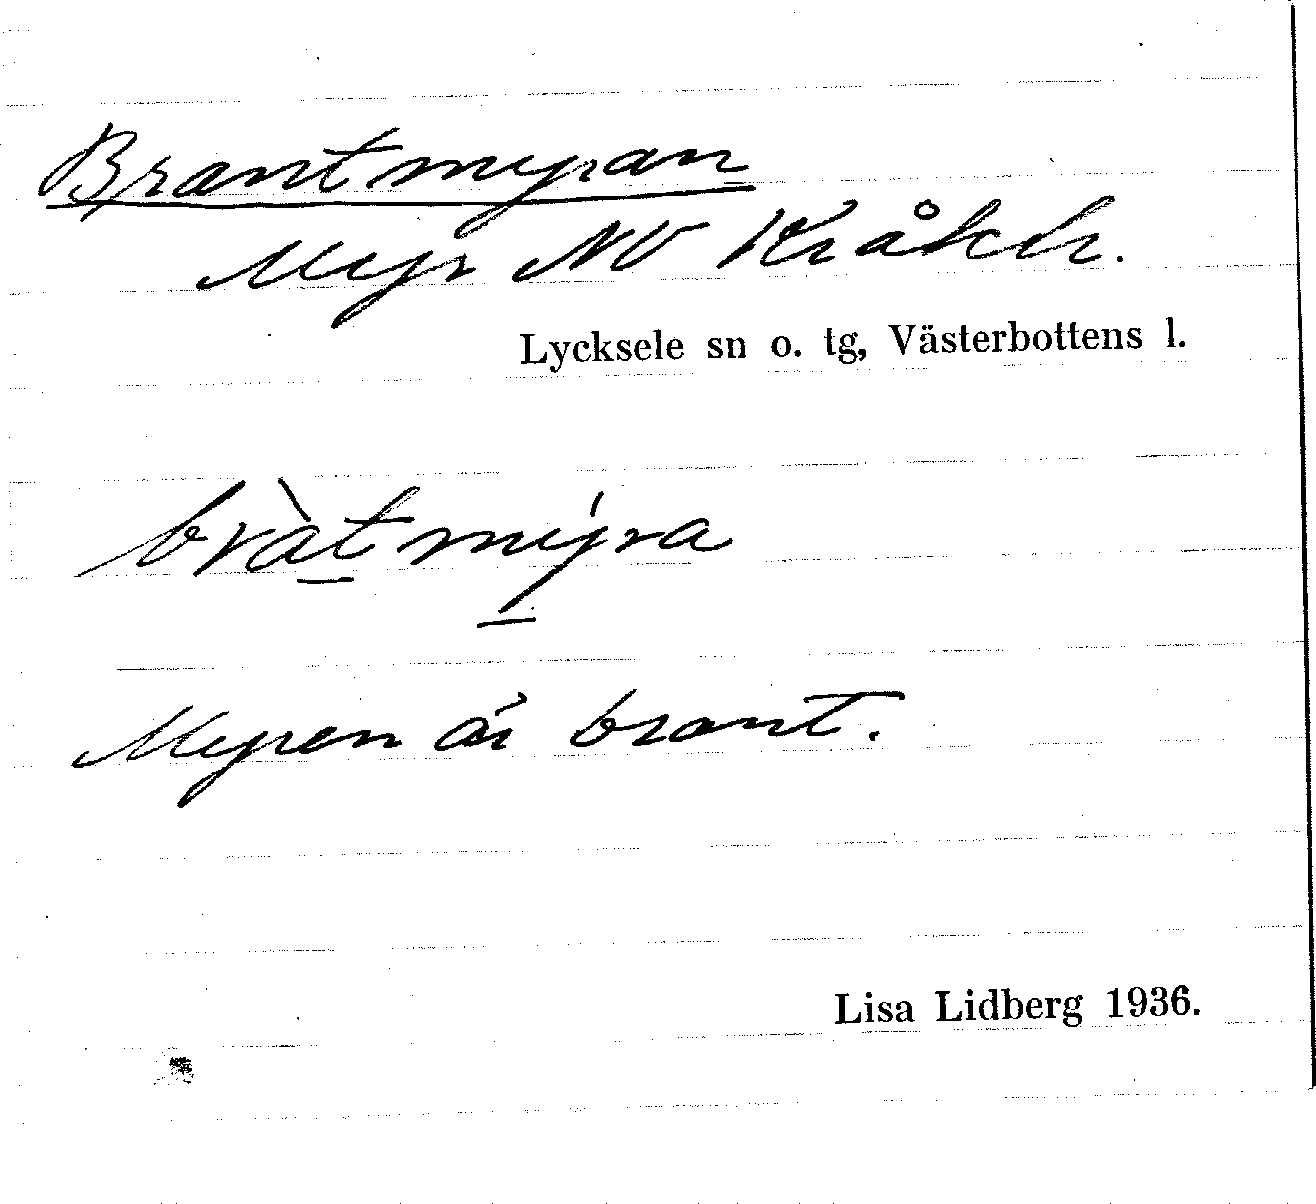 Brantmyran
Myr NV Kråkh.
Lycksele sn o. tg, Västerbottens l.
bràtmýra
Myren är brant.
Lisa Lidberg 1936.